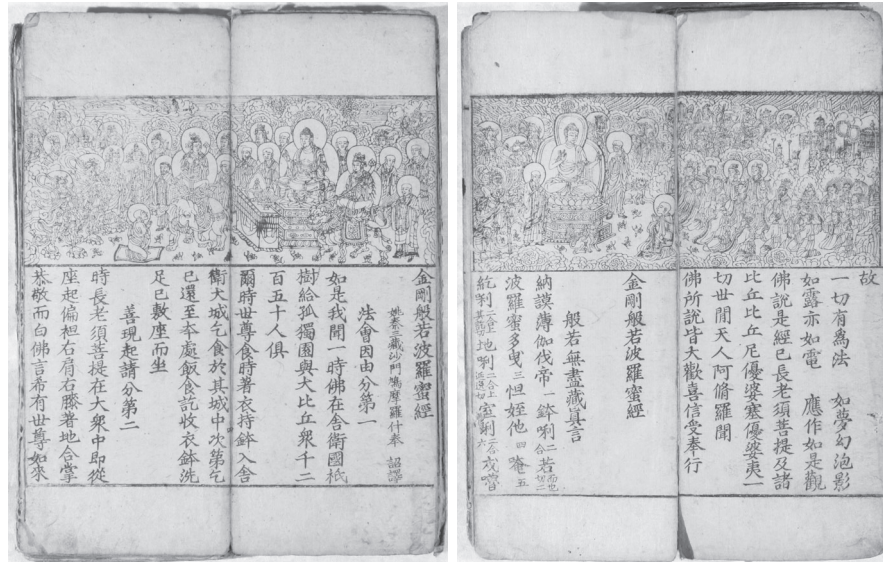 金剛般若波羅蜜經
姚秦三藏沙門鳩摩羅什奉 詔譯
法會因由分第一
如是我聞一時佛在舍衛國祇
樹給孤獨園與大比丘衆千二
百五十人俱
爾時世尊食時著衣持鉢入舍
衛大城乞食於其城中次第乞
已還至本處飯食訖收衣鉢洗
足已敷座而坐
善現起請分第二
時長老須菩提在大衆中即從
座起偏袒右肩右膝著地合掌
恭敬而白佛言希有世尊如來
故
一切有爲法 如夢幻泡影
如露亦如電 應作如是觀
佛說是經已長老須菩提及諸
比丘比丘尼優婆塞優婆夷一
切世閒天人阿脩羅聞
佛所說皆大歡喜信受奉行
金剛般若波羅蜜經
般若無盡藏眞言
納謨薄伽伐帝一鉢唎二合若
波羅蜜多曳三怛姪他四唵五
紇唎二合地唎二合室唎二合六戍嚕